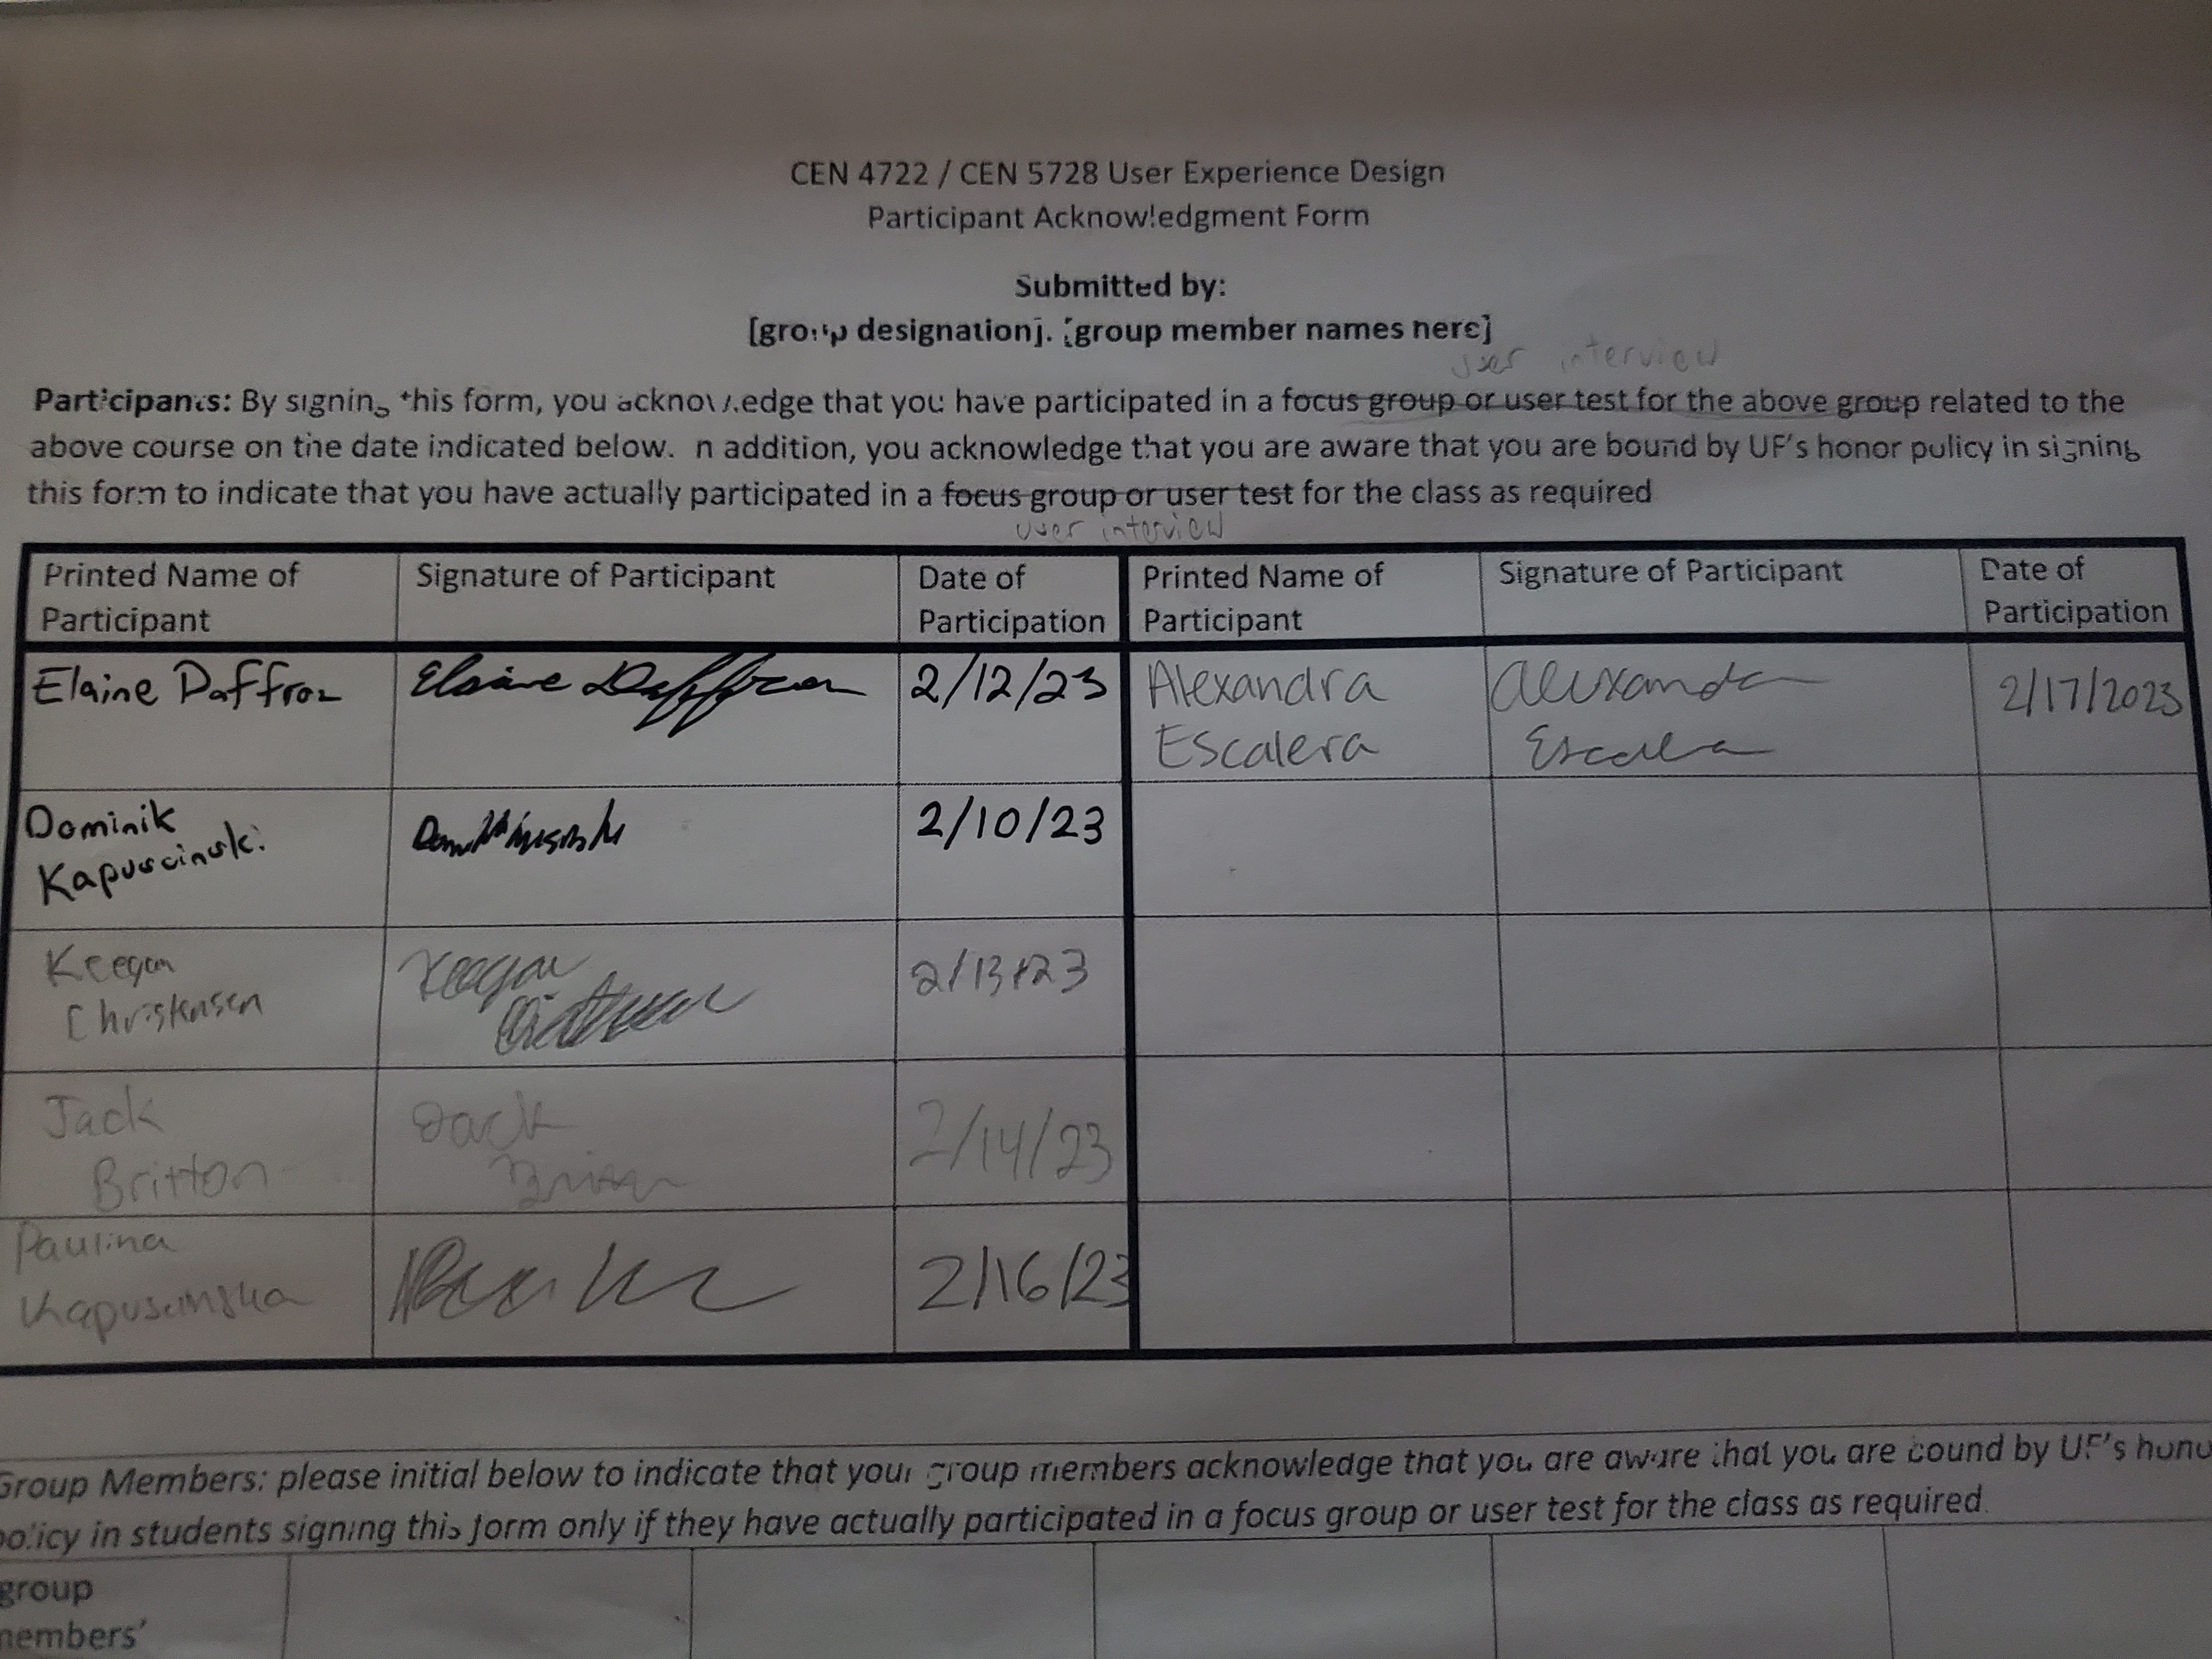 CEN 4722 / CEN 5728 User Experience Design
Participant Acknowledgment Form
Submitted by:
[group designation]. [group member names here]
user interview
Participants: By signing this form, you acknowledge that you have participated in a focus group or user test for the above group related to the
above course on the date indicated below. In addition, you acknowledge that you are aware that you are bound by UF's honor policy in signing
this form to indicate that you have actually participated in a focus group or user test for the class as required
user interview
Printed Name of
Participant
Signature of Participant
Date of
Participation
Printed Name of
Participant
Signature of Participant
Date of
Participation
Elaine Paffroz
Elaine
2/12/23
Alexandra
Escalera
Alexandra
Escalera
2/17/2023
Dominik
Kapuscinski
2/10/23
Keegan
Christensen
Keegan
2/13/23
Jack
Britton
Jack
2/14/23
Paulina
Kapuscinska
2/16/23
Group Members: please initial below to indicate that your group members acknowledge that you are aware that you are bound by UF's hono
policy in students signing this form only if they have actually participated in a focus group or user test for the class as required
group
members'